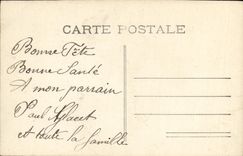 CARTE POSTALE
Bonne Fête
Bonne Santé
A mon parrain
Paul
et toute la famille